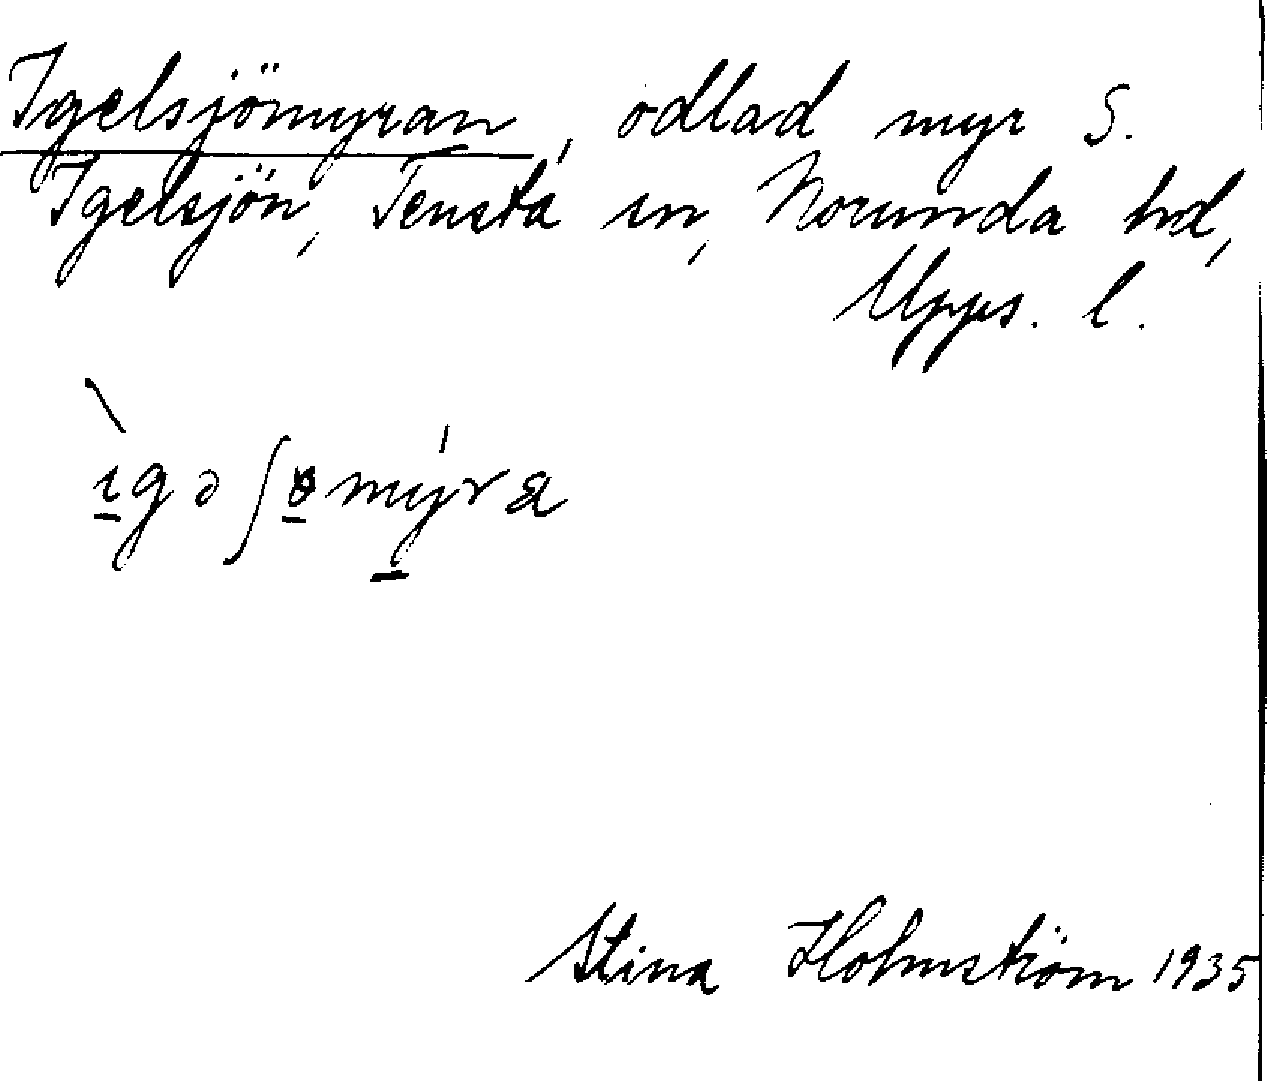 Igelsjömyran, odlad myr S.
Igelsjön, Tensta sn, Norunda hd,
Upps. l.
Stina Holmström 1935